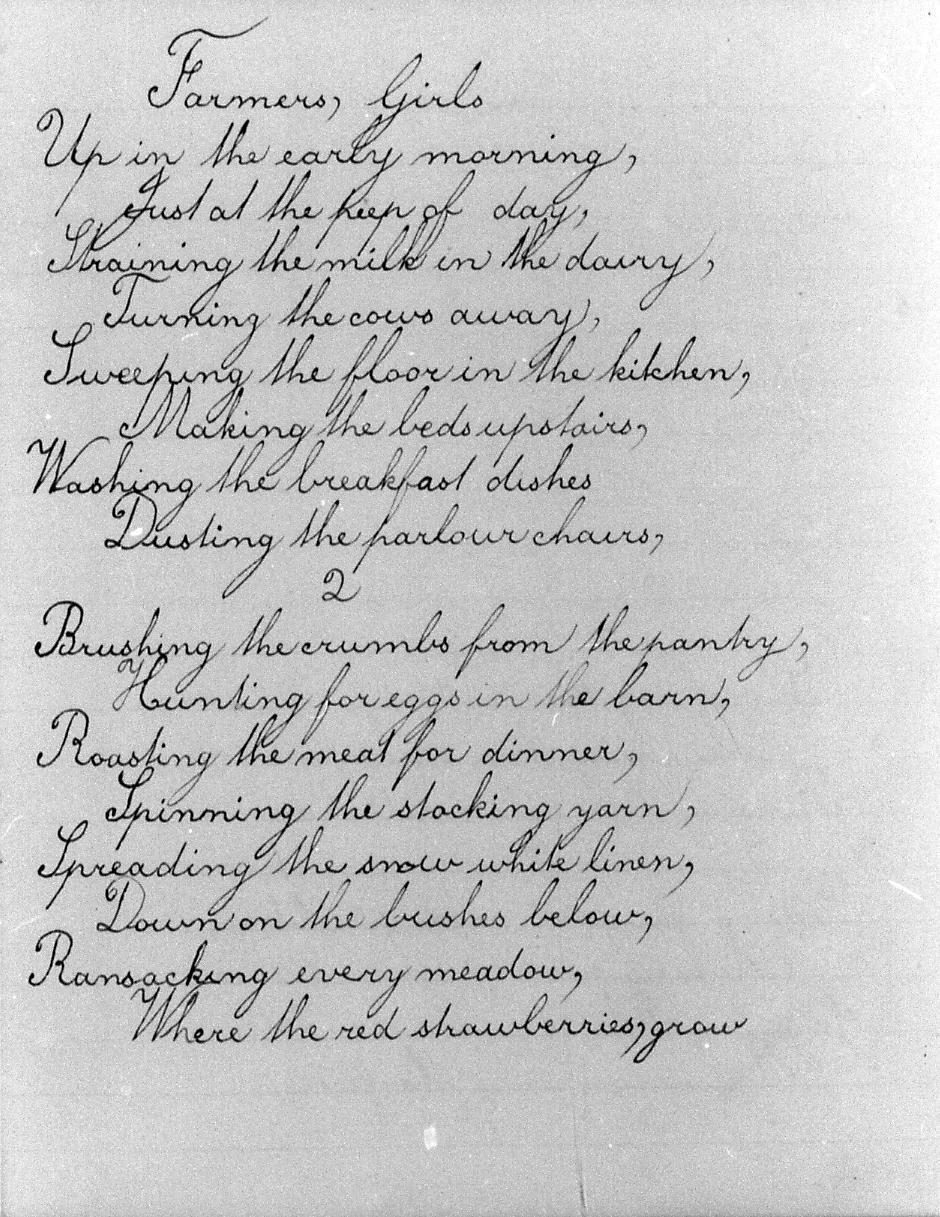 Farmers, Girls
Up in the early morning,
Just at the peep of day,
Straining the milk in the dairy,
Turning the cows away,
Sweeping the floor in the kitchen,
Making the beds upstairs,
Washing the breakfast dishes
Dusting the parlour chairs,
2
Brushing the crumbs from the pantry,
Hunting for eggs in the barn,
Roasting the meat for dinner,
Spinning the stocking yarn,
Spreading the snow white linen,
Down on the bushes below,
Ransacking every meadow,
Where the red strawberries, grow